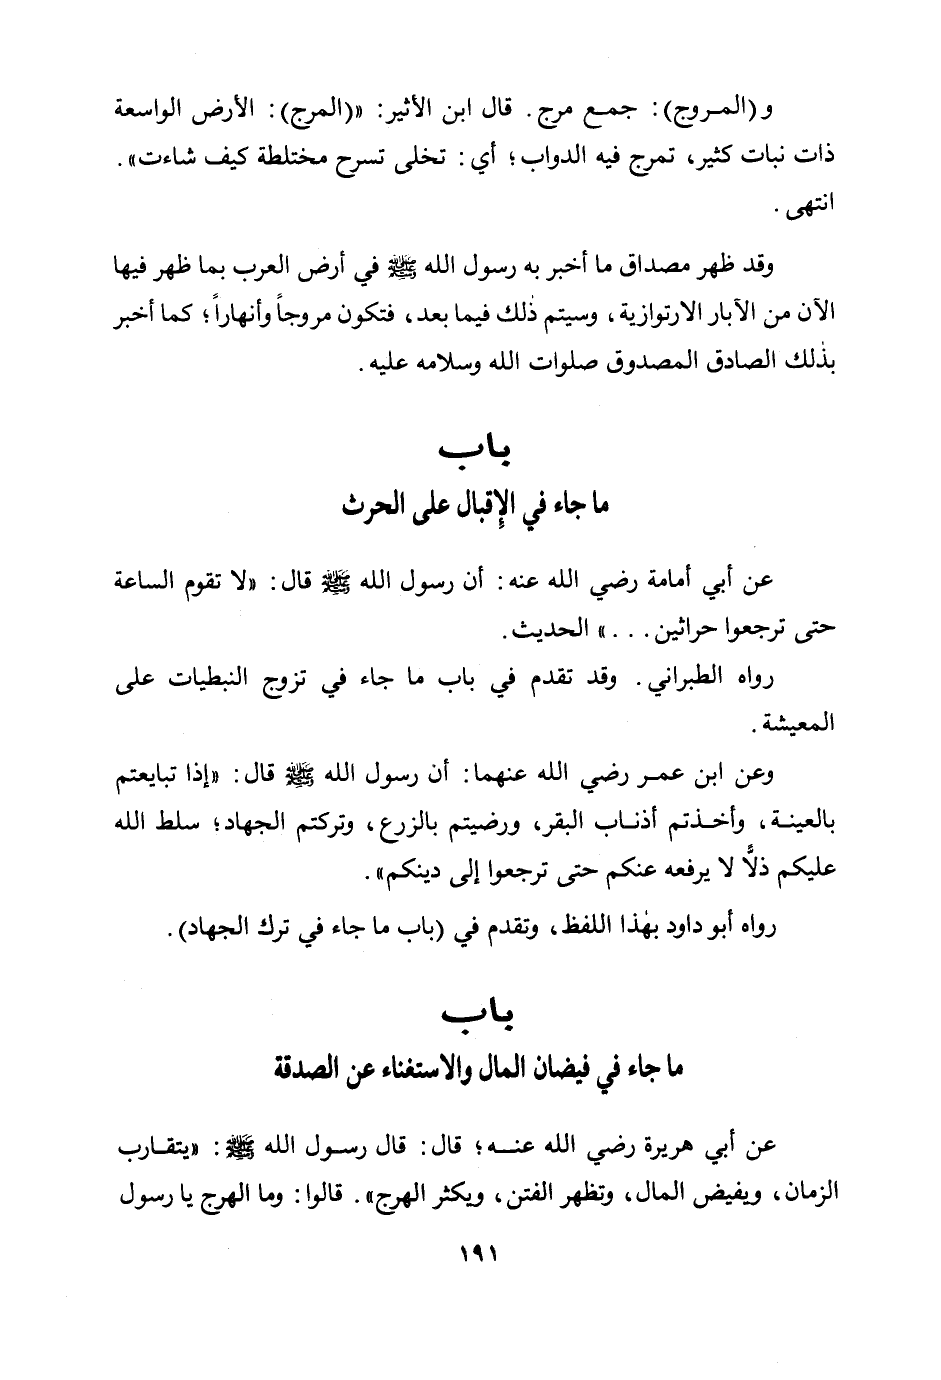 و (المروج): جمع مرج. قال ابن الأثير: «(المرج): الأرض الواسعة
ذات نبات كثير، تمرج فيه الدواب؛ أي: تخلى تسرح مختلطة كيف شاءت».
انتهى.
وقد ظهر مصداق ما أخبر به رسول الله ﷺ في أرض العرب بما ظهر فيها
الآن من الآبار الارتوازية، وسيتم ذٰلك فيما بعد، فتكون مروجاً وأنهاراً؛ كما أخبر
بذٰلك الصادق المصدوق صلوات الله وسلامه عليه.
باب
ما جاء في الإقبال على الحرث
عن أبي أمامة رضي الله عنه: أن رسول الله ﷺ قال: «لا تقوم الساعة
حتى ترجعوا حراثين...» الحديث.
رواه الطبراني. وقد تقدم في باب ما جاء في تزوج النبطيات على
المعيشة.
وعن ابن عمر رضي الله عنهما: أن رسول الله ﷺ قال: «إذا تبايعتم
بالعينة، وأخذتم أذناب البقر، ورضيتم بالزرع، وتركتم الجهاد؛ سلط الله
عليكم ذلًّا لا يرفعه عنكم حتى ترجعوا إلى دينكم».
رواه أبو داود بهٰذا اللفظ، وتقدم في (باب ما جاء في ترك الجهاد).
باب
ما جاء في فيضان المال والاستغناء عن الصدقة
عن أبي هريرة رضي الله عنه؛ قال: قال رسول الله ﷺ: «يتقارب
الزمان، ويفيض المال، وتظهر الفتن، ويكثر الهرج». قالوا: وما الهرج يا رسول
١٩١